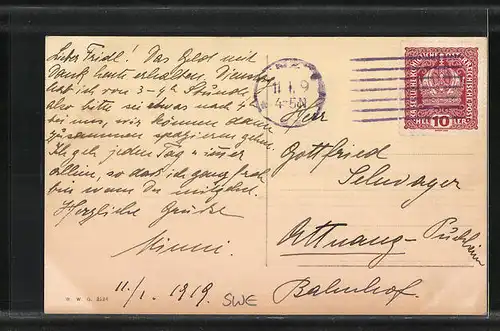 Lieber Fridl! Das Geld mit
Dank heute erhalten, Dienstag
hab ich von 3-4h Stunde,
also bitte sei etwas nach 4h
bei mir, wir können dann
zusammen spazieren gehn.
Ich geh jeden Tag immer
allein, so daß ich ganz froh
bin wenn Du mitgehst.
Herzliche Grüße
Minni.
11./1. 1919.
SWE
11.I.9
4-5N
KAISERLICHE KÖNIGLICHE ÖSTERREICHISCHE POST
HELLER 10 HELLER
Herr
Gottfried
Schwager
Attnang-Puchheim
Bahnhof.